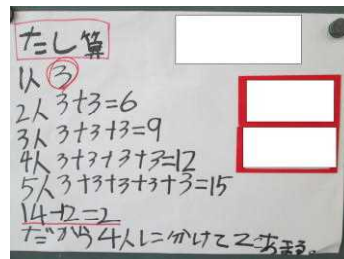 たし算
1人 3
2人 3+3=6
3人 3+3+3=9
4人 3+3+3+3=12
5人 3+3+3+3+3=15
14-12=2
だから4人に分けて2こあまる。